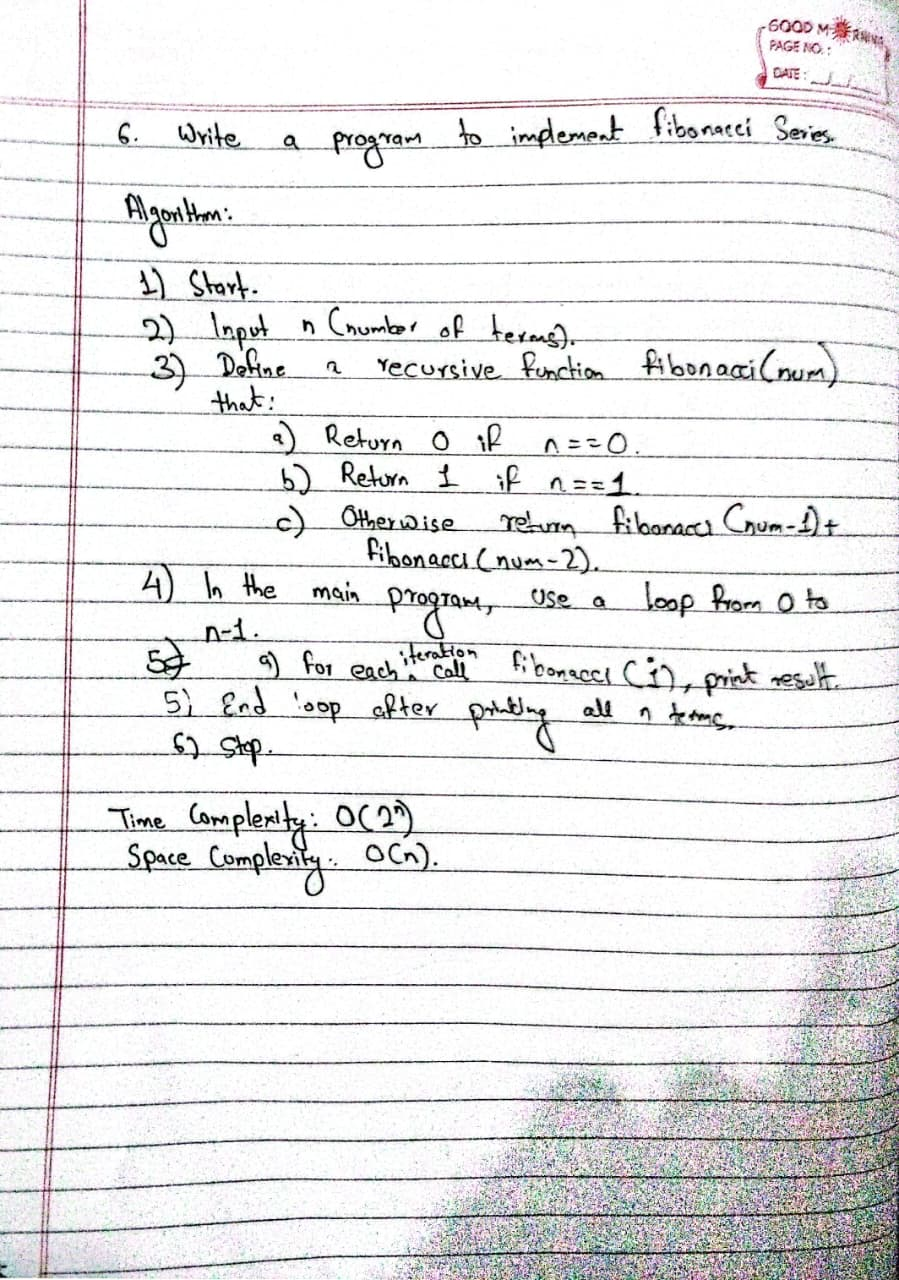 GOOD MORNING
PAGE NO.:
DATE:
6. Write a program to implement fibonacci Series.
Algorithm:
1) Start.
2) Input n (number of terms).
3) Define a recursive function fibonacci(num)
that:
a) Return 0 if n==0.
b) Return 1 if n==1.
c) Otherwise return fibonacci (num-1)+
fibonacci (num-2).
4) In the main program, use a loop from 0 to
n-1.
a) for each iteration call fibonacci (i), print result.
5) End loop after printing all n terms.
6) Stop.
Time Complexity: O(2ⁿ)
Space Complexity: O(n).